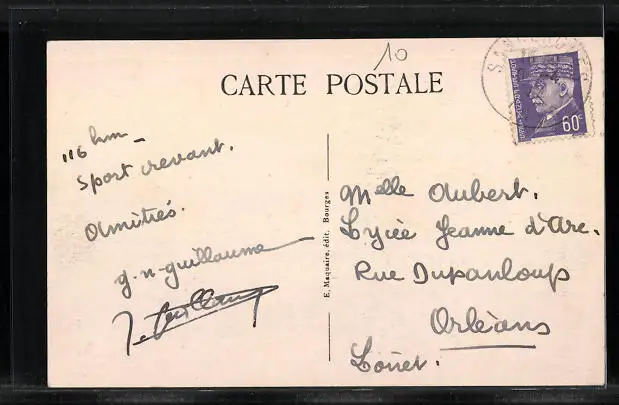 10
CARTE POSTALE
60c
116 km_
Sport crevant.
Amitiés.
g.n. guillaume
Melle Aubert.
Lycée Jeanne d'Arc.
Rue Dupanloup
Orléans
Loiret.
E. Maquaire, édit. Bourges